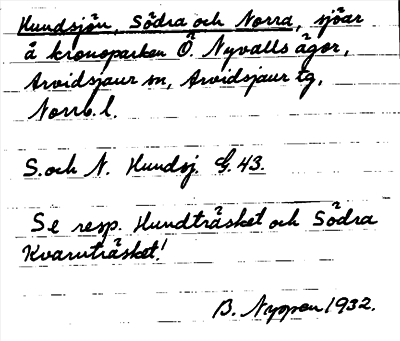 Hundsjön, Södra och Norra, sjöar
å kronoparken Ö. Nyvalls ägor,
Arvidsjaur sn, Arvidsjaur tg,
Norrb. l.
S. och N. Hundsj. G. 43.
Se resp. Hundträsket och Södra
Kvarnträsket!
B. Nyman 1932.